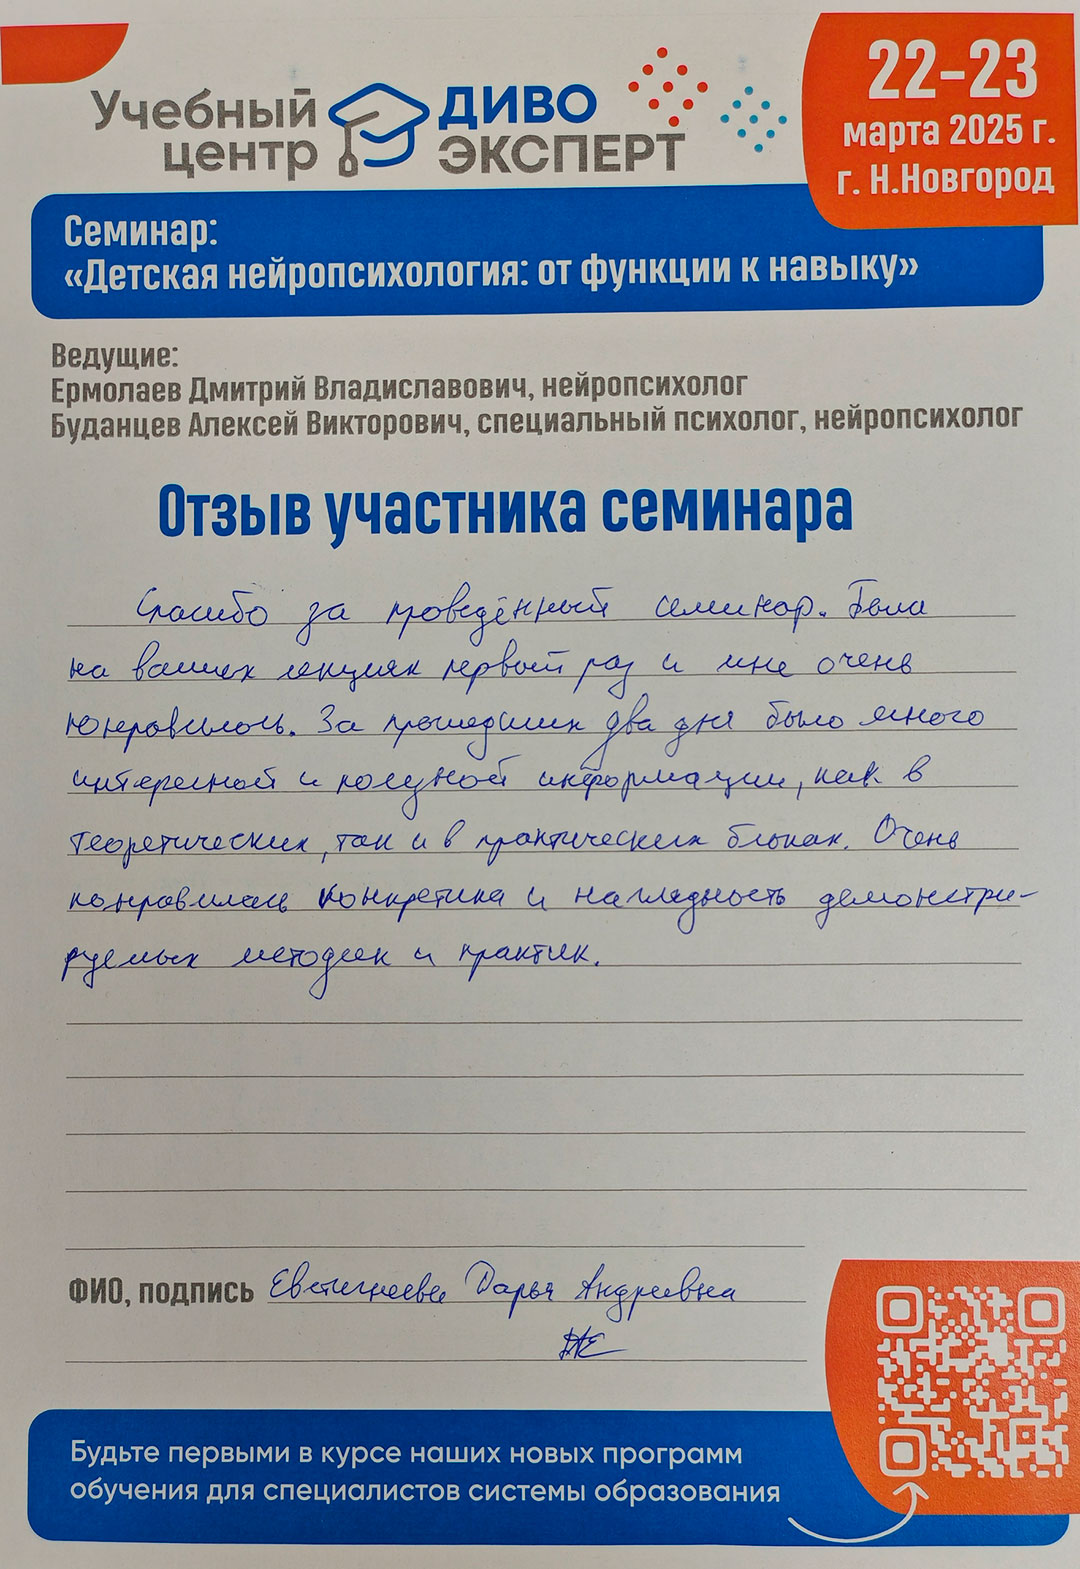 Учебный центр
ДИВО ЭКСПЕРТ
22-23
марта 2025 г.
г. Н.Новгород
Семинар:
«Детская нейропсихология: от функции к навыку»
Ведущие:
Ермолаев Дмитрий Владиславович, нейропсихолог
Буданцев Алексей Викторович, специальный психолог, нейропсихолог
Отзыв участника семинара
Спасибо за проведённый семинар. Была
на ваших лекциях первый раз и мне очень
понравилось. За прошедших два дня было много
интересной и полезной информации, как в
теоретических, так и в практических блоках. Очень
понравилась конкретика и наглядность демонстри-
руемых методик и практик.
ФИО, подпись Евстигнеева Дарья Андреевна
Будьте первыми в курсе наших новых программ
обучения для специалистов системы образования